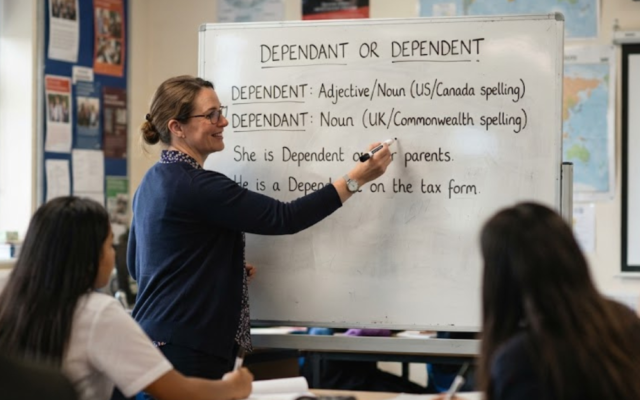 DEPENDANT OR DEPENDENT
DEPENDENT: Adjective/Noun (US/Canada spelling)
DEPENDANT: Noun (UK/Commonwealth spelling)
She is Dependent parents.
is a on the tax form.